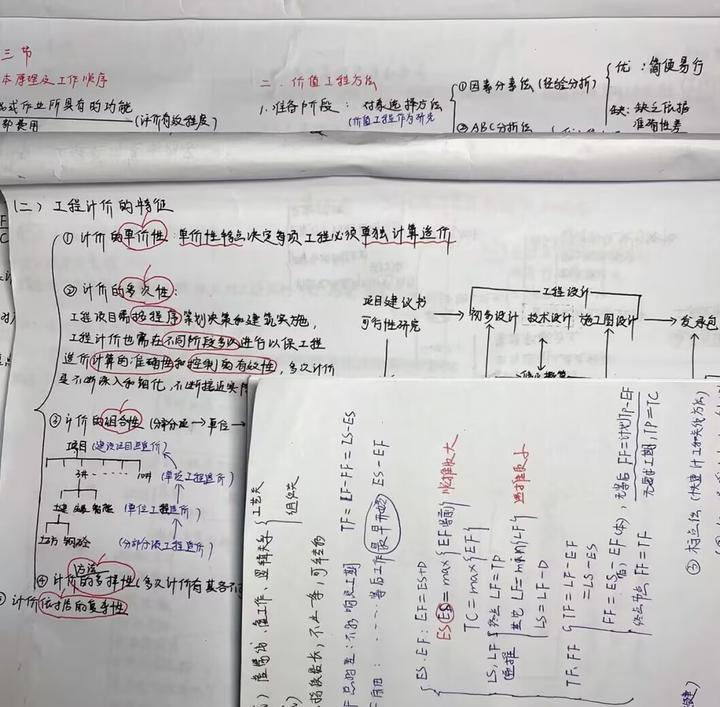 三节
本原理及工作顺序
或作业所具有的功能
(评价有效程度)
二、价值工程方法
1.准备阶段：对象选择方法
(价值工程作为研究
①因素分素法(经验分析)
优：简便易行
缺：缺乏依据
准确性差
②ABC分析法
(二)工程计价的特征
①计价的单价性：单价性特点决定每项工程必须单独计算造价
②计价的多次性：
工程项目需按程序策划决策和建筑实施，
工程计价也需在不同阶段多次进行以保工程
造价计算的准确性和控制的有效性，多次计价
是不断深入和细化，不断接近实际
项目建议书
可行性研究
工程设计
初步设计
技术设计
施工图设计
发承包
③计价的组合性(分部分项→单位→
项目(建设项目总造价)
(单项工程造价)
(单位工程造价)
(分部分项工程造价)
方法
④计价的多样性(多次计价有其各不
计价依据的复杂性
工艺关
组织关
TF=LF-FF=LS-ES
最早开始
ES-EF
ES.EF:EF=ES+D
ES=max{EF紧前} 顺推取大
TC=max{EF}
LS,LF 终点 LF=TP
逆推 其它 LF=min{LF} 逆推取小
LS=LF-D
TF.FF
TF=LF-EF
=LS-ES
FF=ES-EF(本)
终点节点 FF=TF
无紧后 FF=计划TP-EF
无要求工期，TP=TC
③标号法(快速计工和关键方法)